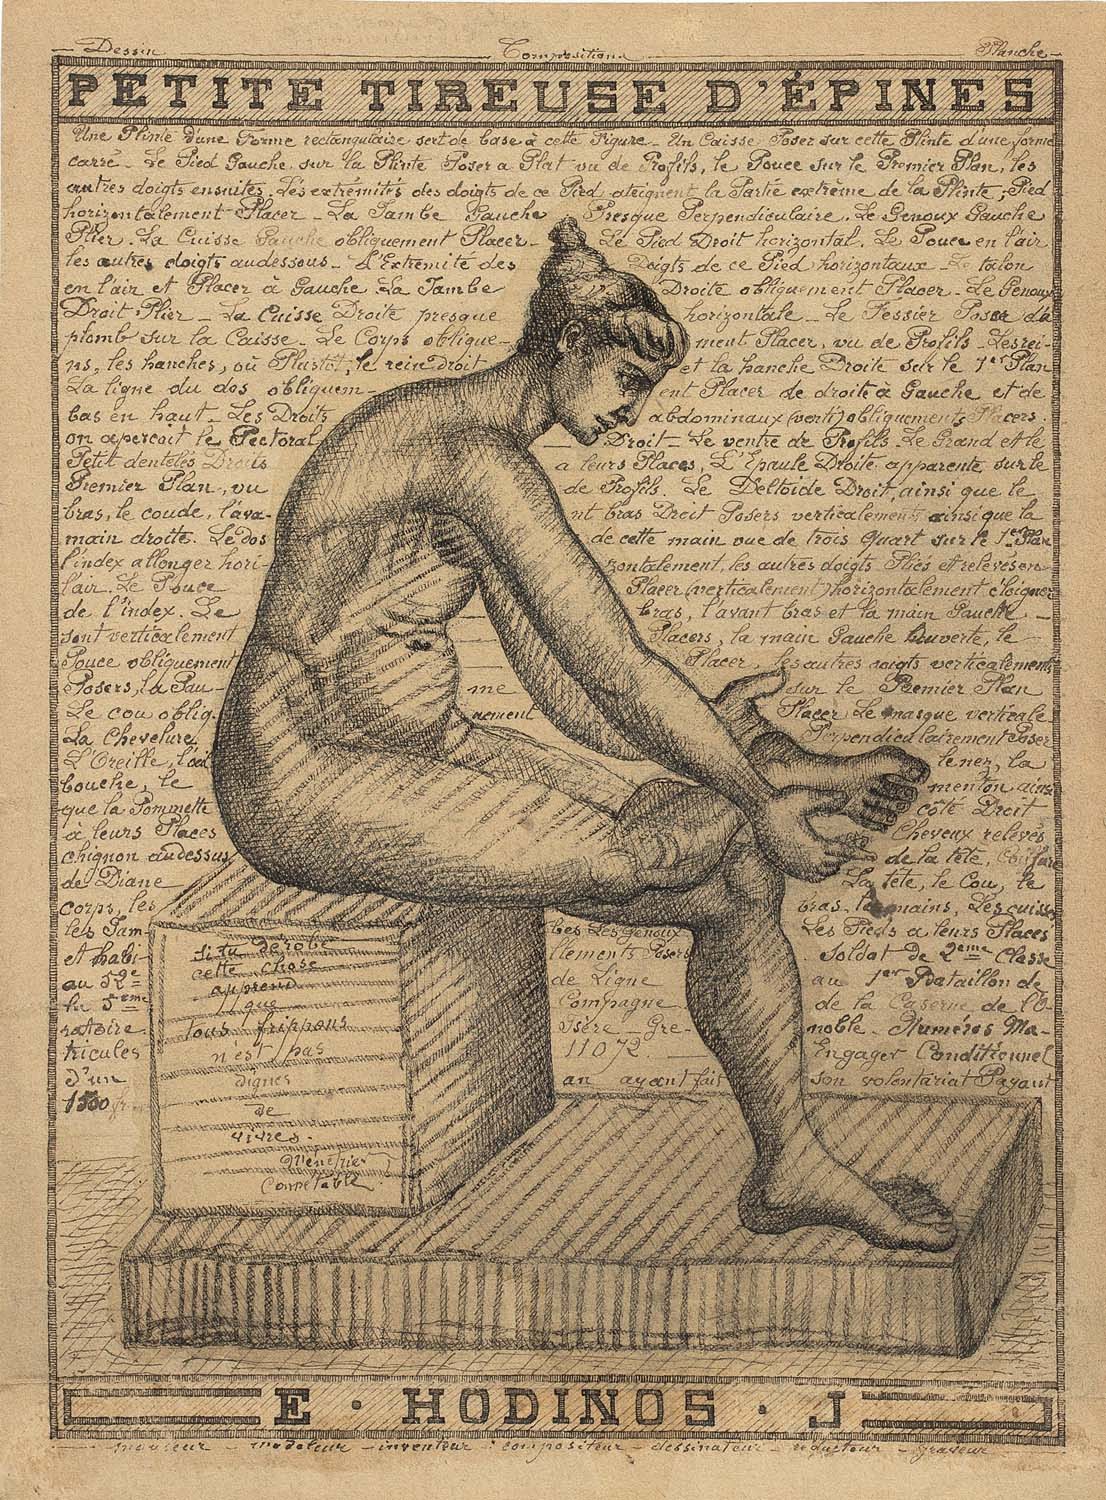 Dessin Compositions Planche
PETITE TIREUSE D'ÉPINES
Une Plinte d'une Forme rectangulaire sert de base à cette Figure - Un Caisse Poser sur cette Plinte d'une forme
carré - Le Pied Gauche sur la Plinte Poser a Plat vu de Profils, le Pouce sur le Premier Plan, les
autres doigts ensuites, Les extrémités des doigts de ce Pied ateignent la Partie extreme de la Plinte, Pied
horizontalement Placer - La Jambe Gauche Presque Perpendiculaire. Le Genoux Gauche
Plier. La Cuisse Gauche obliquement Placer - Le Pied Droit horizontal. Le Pouce en l'air
les autres doigts audessous - L'Extremité des Doigts de ce Pied horizontaux - Le talon
en l'air et Placer à Gauche. La Jambe Droite obliquement Placer - Le Genoux
Droit Plier - La Cuisse Droite presque horizontale - Le Fessier Poser d'a
plomb sur la Caisse - Le Corps oblique- ment Placer, vu de Profils - Les rei-
ns, les hanches, ou Plustôt, le rein droit et la hanche Droite sur le 1er Plan
La ligne du dos obliquem- ent Placer de droite à Gauche et de
bas en haut - Les Droits abdominaux (vent) obliquements Placers.
on apercoit le Pectoral Droit - Le ventre de Profils. Le Grand et le
Petit dentelés Droits a leurs Places, L'Epaule Droite apparente sur le
Premier Plan, vu de Profils. Le Deltoide Droit, ainsi que le
bras, le coude, l'ava- nt bras Droit Posers verticalement ainsi que la
main droite. Le dos de cette main vue de trois quart sur le 1er Plan
l'index allonger hori- zontalement, les autres doigts Pliés et relevés en
l'air. Le Pouce Placer (verticalement) horizontalement éloigner
de l'index. Le bras, l'avant bras et la main Gauche -
sont verticalement Placers, la main Gauche ouverte, le
Pouce obliquement Placer, les autres doigts verticalements
Posers, la Gau- me sur le Premier Plan
Le cou obliq. uement Placer Le masque verticale
La Chevelure Perpendiculairement Poser
L'Oreille, l'œil le nez, la
bouche, le menton ainsi
que la Pommette côté Droit
à leurs Places Cheveux relevés
chignon audessus de la tête, Coiffure
de Diane La tête, le Cou, le
corps, les bras, les mains, Les cuisses
les Jam- bes Les Genoux Les Pieds a leurs Places
et habi- llements Posers Soldat de 2eme Classe
au 52e de Ligne au 1er Bataillon de
la 5eme Compagne de la Caserne de l'O-
ratoire. Isère - Gre- noble - Numéros Ma-
tricules 11072 Engager Conditionnel
d'un an ayant fais son volontariat Payant
1500 fr.
si tu dérobe
cette chose
apprend
que
tous frippons
n'est pas
dignes
de
vivres.
Connétable
E · HODINOS · J
modeleur - inventeur - compositeur - dessinateur - - graveur